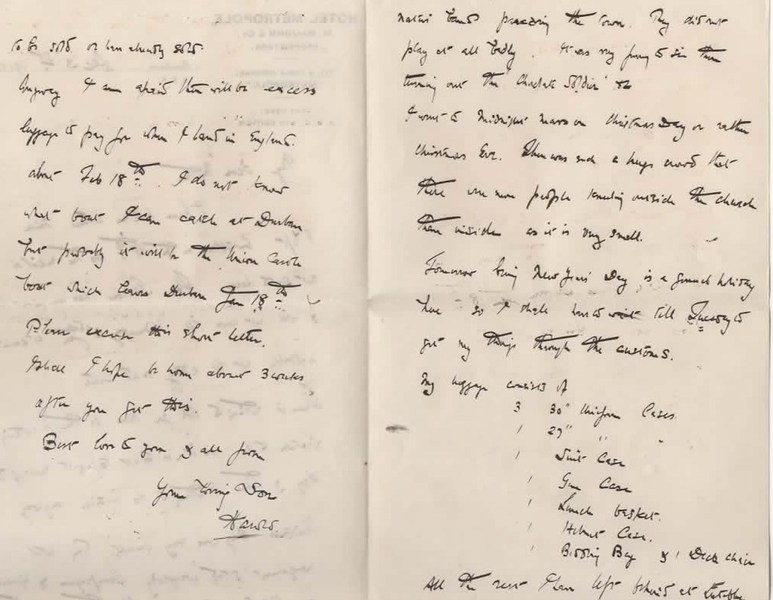 to be sold or has already sold
Anyway I am afraid there will be excess
luggage to pay for when I land in England.
about Feb 18th. I do not know
what boat I can catch at Durban
but probably it will be the Union Castle
boat which leaves Durban Jan 18th.
Please excuse this short letter.
I hope to be home about 3 weeks
after you get this.
Best love to you & all from
Your loving Son
Harold.
native bands parading the town. They did not
play at all badly. It was very funny to see them
turning out the "Chocolate Soldier"
I went to Midnight mass on Christmas Day or rather
Christmas Eve. There was such a huge crowd that
there were more people kneeling outside the church
than inside as it is very small.
Tomorrow being New Years Day is a general holiday
here so I shall have to wait till Tuesday to
get my things through the customs.
My luggage consists of
3 30" Uniform Cases
1 27" "
1 Suit Case
1 Gun Case
1 Lunch basket.
1 Helmet Case.
1 Bedding Bag & 1 Deck chair
All the rest I have left behind at Entebbe
HOTEL METROPOLE